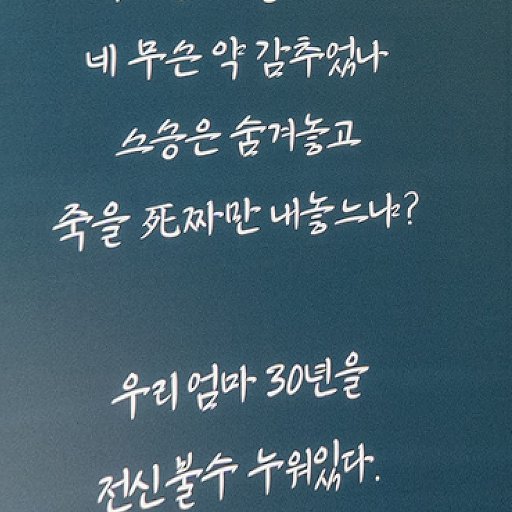 네 무슨 약 감추었나
스승은 숨겨놓고
죽을 死짜만 내놓느냐?
우리 엄마 30년을
전신불수 누워있다.